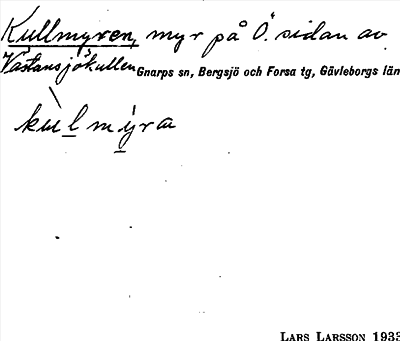 Kullmyren, myr på Ö. sidan av
Västansjökullen Gnarps sn, Bergsjö och Forsa tg, Gävleborgs län
kùlmýra
LARS LARSSON 1933